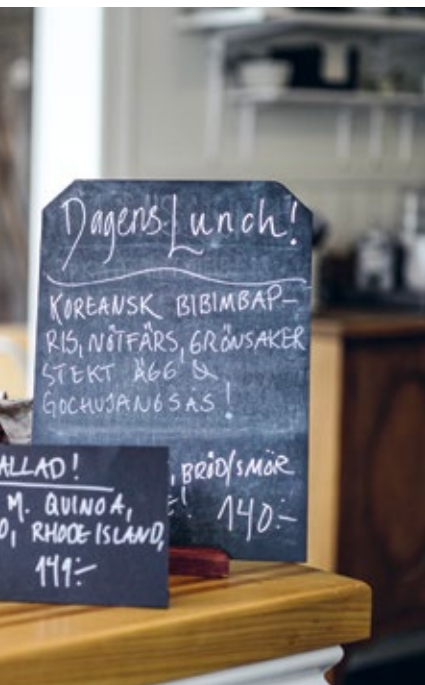 Dagens Lunch!
KOREANSK BIBIMBAP-
RIS, NÖTFÄRS, GRÖNSAKER
STEKT ÄGG &
GOCHUJANGSÅS!
, BRÖD/SMÖR
! 140:-
ALLAD!
M. QUINOA,
O, RHODE ISLAND,
149:-